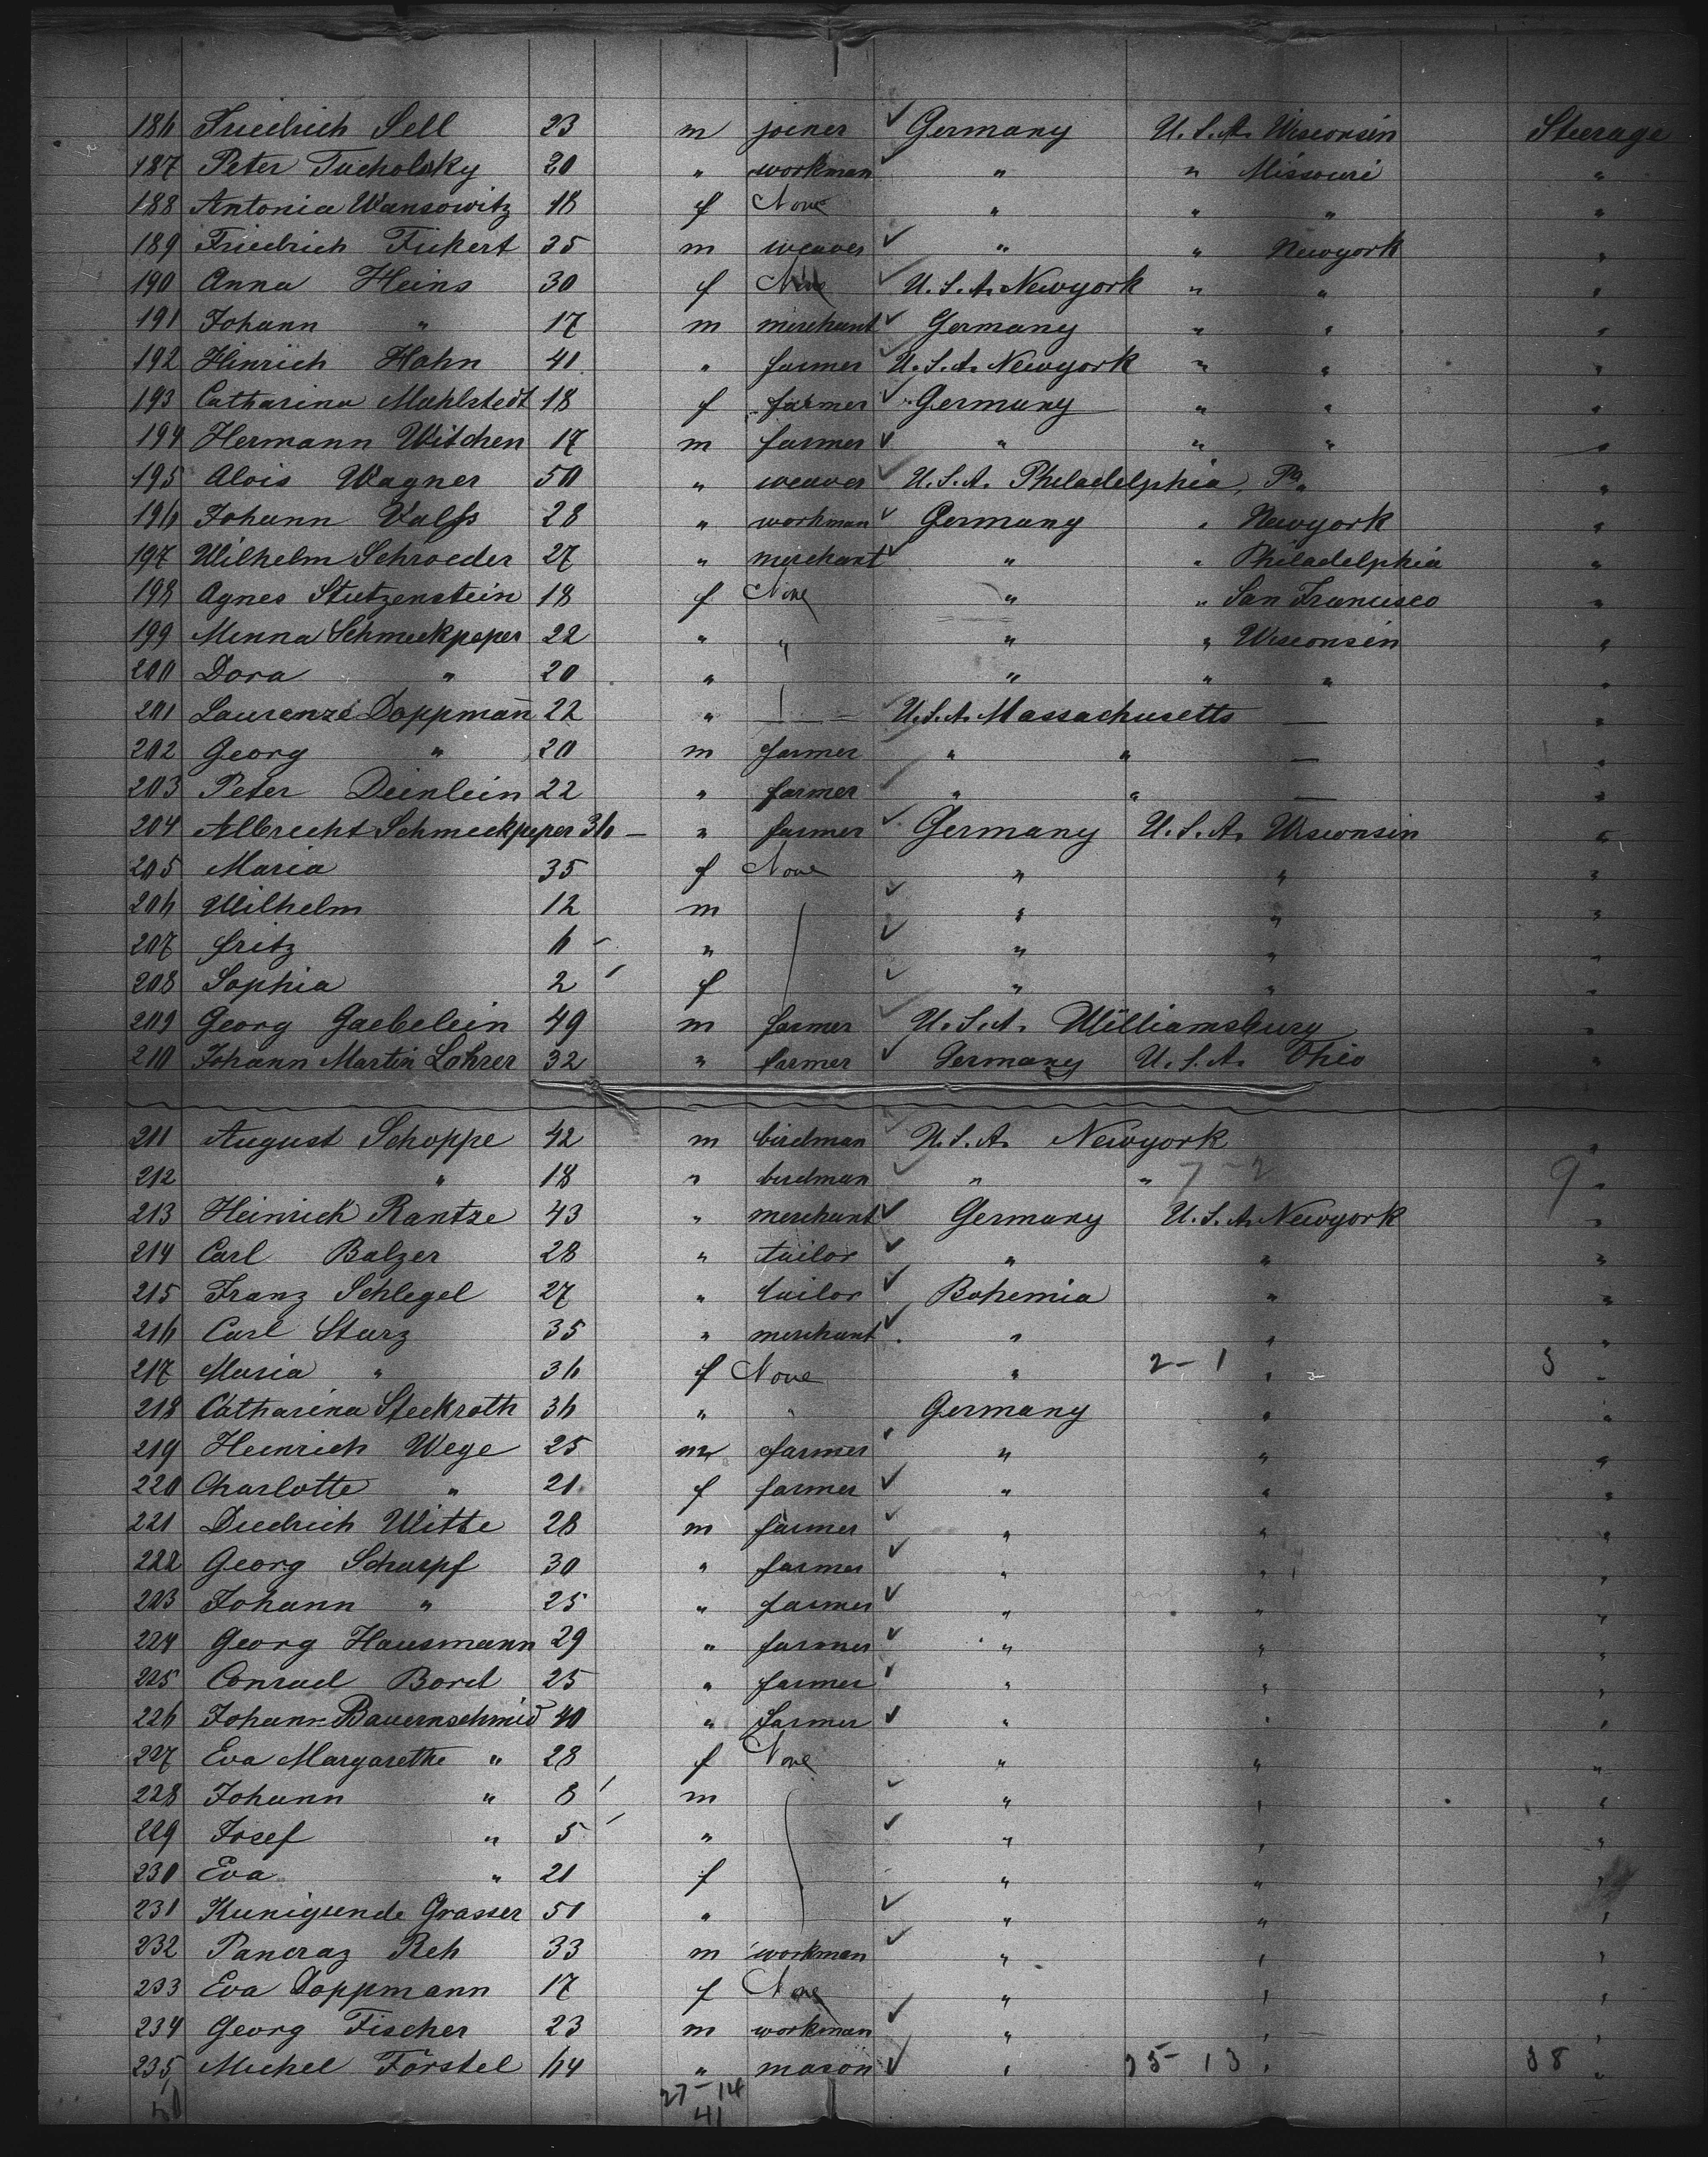 186 Friedrich Sell 23 m joiner ✓ Germany U.S.A. Wisconsin Steerage
187 Peter Tucholsky 20 " workman ✓ " " Missouri "
188 Antonia Wansowitz 18 f None " " " "
189 Friedrich Fickert 35 m weaver ✓ " " Newyork "
190 Anna Heins 30 f None ✓ U.S.A. Newyork " " "
191 Johann " 17 m merchant ✓ Germany " " "
192 Hinrich Hahn 41 " farmer ✓ U.S.A. Newyork " " "
193 Catharina Mahlstedt 18 f farmer ✓ Germany " " "
194 Hermann Witchen 17 m farmer ✓ " " " "
195 Alois Wagner 50 " weaver ✓ U.S.A. Philadelphia, Pa. "
196 Johann 28 " workman ✓ Germany " Newyork "
197 Wilhelm Schroeder 27 " merchant ✓ " " Philadelphia "
198 Agnes Stutzenstein 18 f None " " San Francisco "
199 Minna Schmeckpeper 22 " " " " Wisconsin "
200 Dora " 20 " " " " "
201 Laurenze Doppmann 22 " — ✓ U.S.A. Massachusetts — "
202 Georg " 20 m farmer " " — "
203 Peter Deinlein 22 " farmer ✓ " " — "
204 Albrecht Schmeckpeper 36 — " farmer ✓ Germany U.S.A. Wisconsin "
205 Maria 35 f None " " "
206 Wilhelm 12 m ✓ " " "
207 Fritz 6 " ✓ " " "
208 Sophia 2 f ✓ " " "
209 Georg Gaebelein 49 m farmer ✓ U.S.A. Williamsburg "
210 Johann Martin Lohrer 32 " farmer ✓ Germany U.S.A. Ohio "
211 August Schoppe 42 m birdman ✓ U.S.A. Newyork "
212 " 18 " birdman ✓ " " 7-2 9 "
213 Heinrich Rantze 43 " merchant ✓ Germany U.S.A. Newyork "
214 Carl Balzer 28 " tailor ✓ " " "
215 Franz Schlegel 27 " tailor ✓ Bohemia " "
216 Carl Sturz 35 " merchant ✓ " " "
217 Maria " 36 f None " 2-1 " 3 "
218 Catharina Steckroth 36 " " Germany " "
219 Heinrich Wege 25 m farmer " " "
220 Charlotte " 21 f farmer ✓ " " "
221 Diedrich Witte 28 m farmer ✓ " " "
222 Georg Scharpf 30 " farmer ✓ " " "
223 Johann " 25 " farmer ✓ " " "
224 Georg Hausmann 29 " farmer ✓ " " "
225 Conrad Bord 25 " farmer ✓ " " "
226 Johann Bauernschmid 40 " farmer ✓ " " "
227 Eva Margarethe " 28 f None " " "
228 Johann " 8 m ✓ " " "
229 Josef " 5 " ✓ " " "
230 Eva " 21 f " " "
231 Kunigunde Grasser 51 " ✓ " " "
232 Pancraz Reh 33 m workman ✓ " " "
233 Eva Doppmann 17 f None " " "
234 Georg Fischer 23 m workman ✓ " " "
235 Michel Förstel 64 " mason ✓ " 25-13 " 38 "
27-14
41